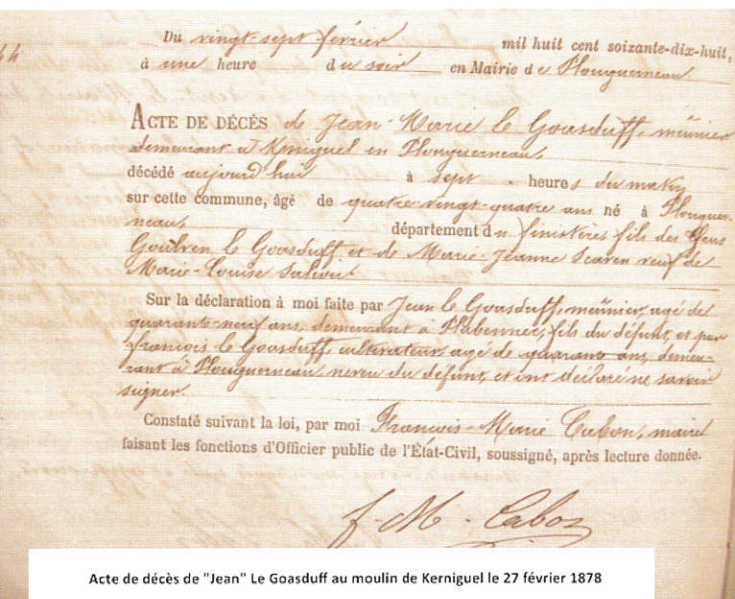 44
Du vingt-sept février mil huit cent soixante-dix-huit,
à une heure du soir en Mairie de Plouguerneau
ACTE DE DÉCÈS de Jean-Marie le Goasduff, meunier
demeurant à Kerniguel en Plouguerneau,
décédé aujourd'hui à sept heures du matin
sur cette commune, âgé de quatre-vingt-quatre ans né à Plouguer-
neau, département du finistères fils des feus
Goulven le Goasduff et de Marie-Jeanne veuf de
Marie-Louise
Sur la déclaration à moi faite par Jean le Goasduff, meûnier, agé de
quarante-neuf ans, demeurant à Plabennec, fils du défunt, et par
françois le Goasduff, cultivateur, agé de quarante ans, demeu-
rant à Plouguerneau neveu du défunt, et ont déclaré ne savoir
signer.
Constaté suivant la loi, par moi François-Marie Cabon, maire
faisant les fonctions d'Officier public de l'État-Civil, soussigné, après lecture donnée.
f. M. Cabon
Acte de décès de "Jean" Le Goasduff au moulin de Kerniguel le 27 février 1878